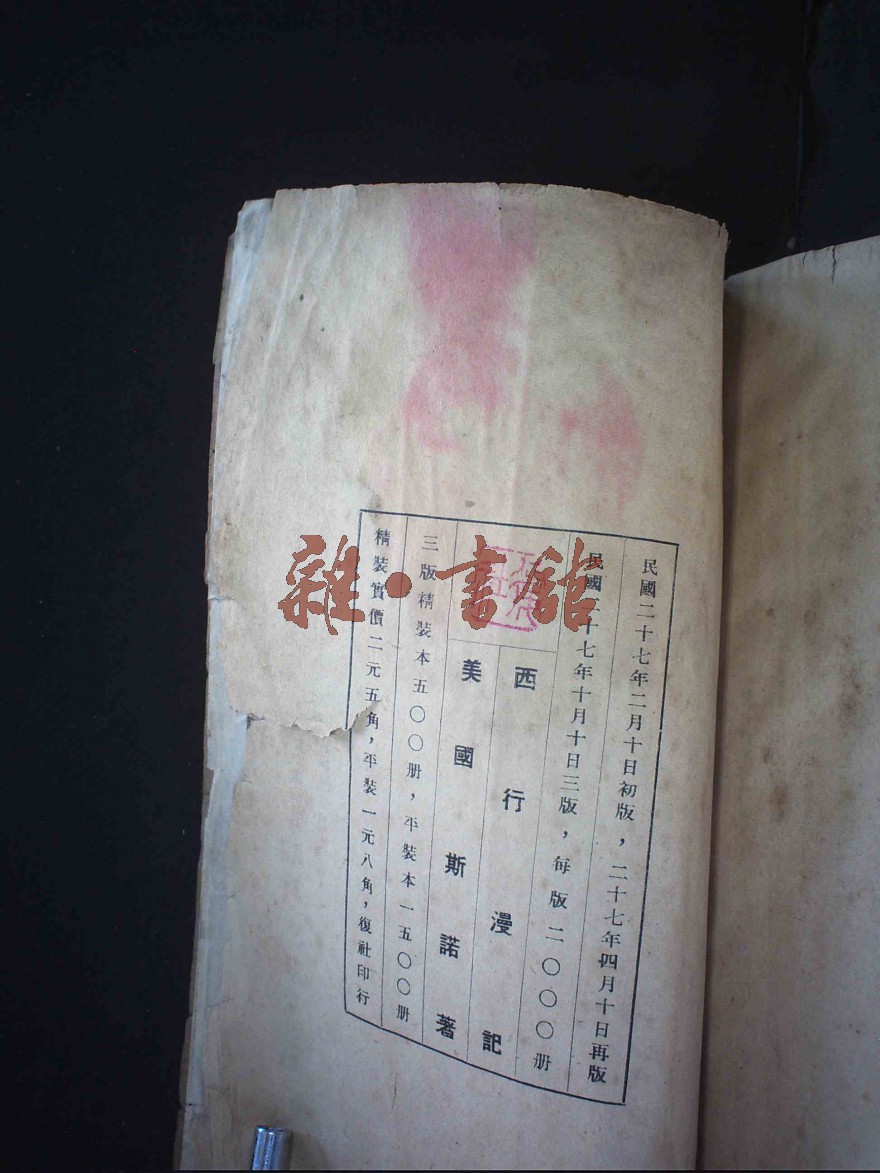 民國二十七年二月十日初版，二十七年四月十日再版
民國二十七年十月十日三版，每版二〇〇〇册
西行漫記
美國斯諾著
三版精裝本五〇〇册，平裝本一五〇〇册
精裝實價二元五角，平裝一元八角，復社印行
雜·書館